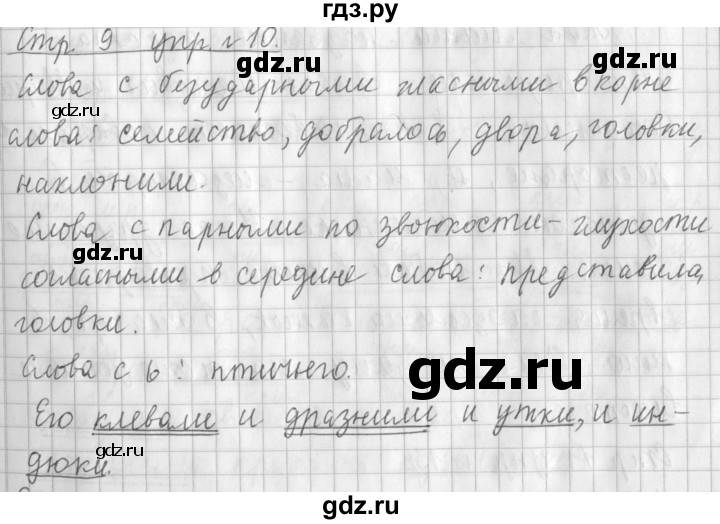 гдз.ру
Стр. 9 упр. № 10.
Слова с безударными гласными в корне
слова: семейство, добралось, двора, головки,
наклонили.
Слова с парными по звонкости-глухости
согласными в середине слова: представила,
головки.
Слова с ь: птичьего.
Его клевали и дразнили и утки, и ин-
дюки.
gdz.ru
gdz.ru
gdz.ru
gdz.ru
gdz.ru
gdz.ru
gdz.ru
gdz.ru
gdz.ru